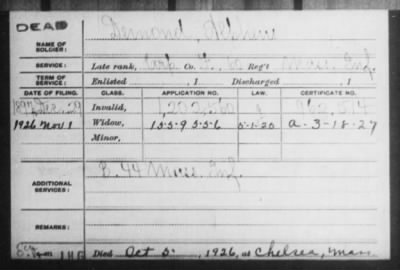 DEAD
NAME OF SOLDIER: Demond,
SERVICE: Late rank, Corp Co. Reg't Mass Inf.
TERM OF SERVICE: Enlisted , 1 Discharged , 1
DATE OF FILING. CLASS. APPLICATION NO. LAW. CERTIFICATE NO.
Invalid,
1926 Nov 1 Widow, 1559556 5-1-20 a-3-18-27
Minor,
ADDITIONAL SERVICES: E. 44 Mass Inf.
REMARKS:
Died Oct 5, 1926, at Chelsea, Mass